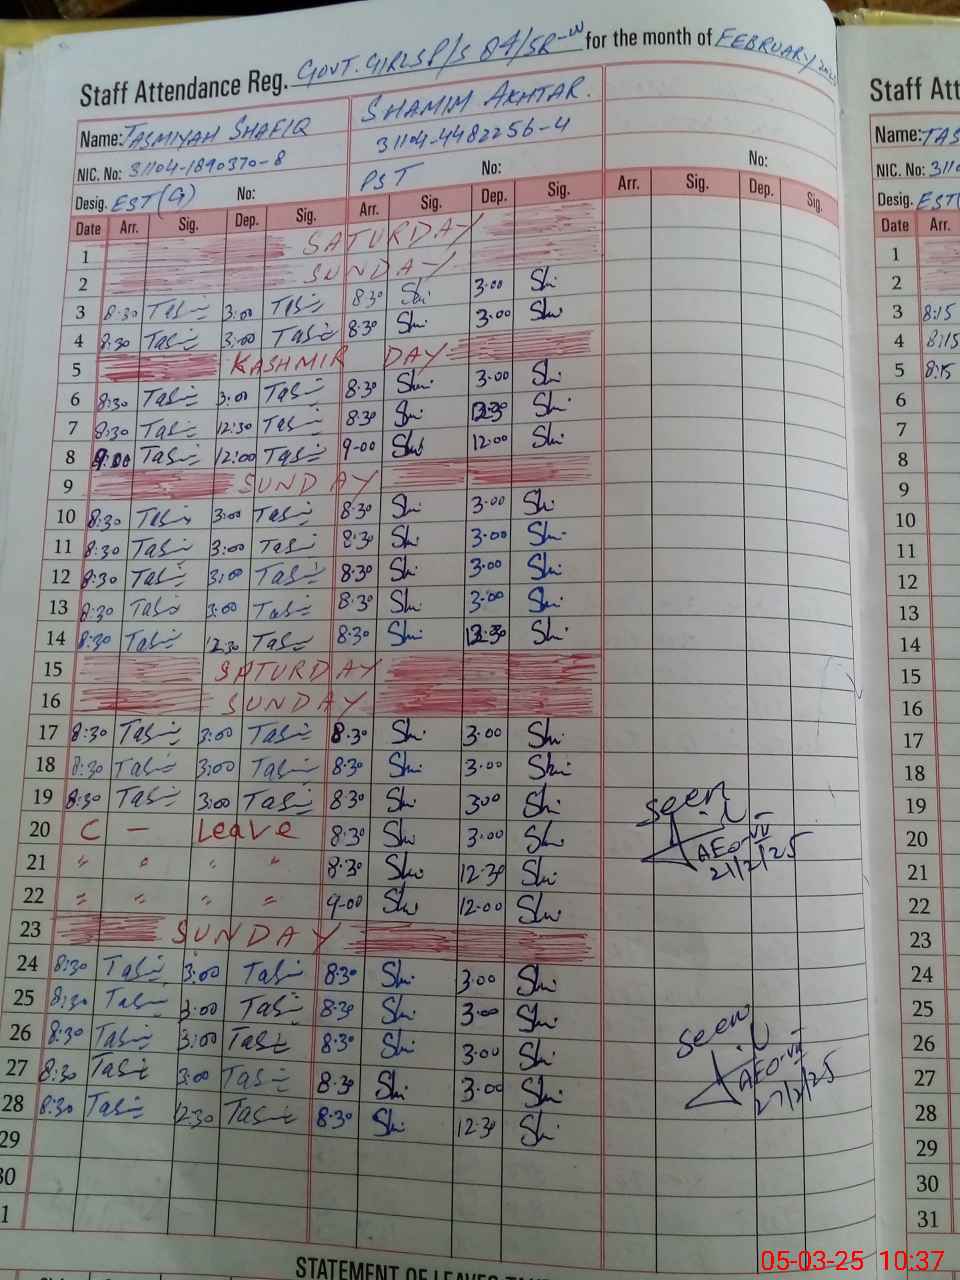 Staff Attendance Reg. GOVT. GIRLS P/S 84/5R-W for the month of FEBRUARY
Name: TASMIYAH SHAFIQ SHAMIM AKHTAR.
NIC. No: 31104-1890370-8 31104-4482256-4
Desig. EST (G) No: PST No: No:
Date Arr. Sig. Dep. Sig. Arr. Sig. Dep. Sig. Arr. Sig. Dep. Sig.
1 SATURDAY
2 SUNDAY
3 8:30 Tas 3:00 Tas 8:30 Shi 3:00 Shi
4 8:30 Tas 3:00 Tas 8:30 Shi 3:00 Shi
5 KASHMIR DAY
6 8:30 Tas 3:00 Tas 8:30 Shi 3:00 Shi
7 8:30 Tas 12:30 Tas 8:30 Shi 12:30 Shi
8 9:00 Tas 12:00 Tas 9-00 Shi 12:00 Shi
9 SUNDAY
10 8:30 Tas 3:00 Tas 8:30 Shi 3:00 Shi
11 8:30 Tas 3:00 Tas 8:30 Shi 3:00 Shi
12 8:30 Tas 3:00 Tas 8:30 Shi 3:00 Shi
13 8:30 Tas 3:00 Tas 8:30 Shi 3:00 Shi
14 8:30 Tas 12:30 Tas 8:30 Shi 12:30 Shi
15 SATURDAY
16 SUNDAY
17 8:30 Tas 3:00 Tas 8:30 Shi 3:00 Shi
18 8:30 Tas 3:00 Tas 8:30 Shi 3:00 Shi
19 8:30 Tas 3:00 Tas 8:30 Shi 3:00 Shi
20 C - Leave 8:30 Shi 3:00 Shi
21 " " " " 8:30 Shi 12:30 Shi
22 " " " " 9-00 Shi 12:00 Shi
23 SUNDAY
24 8:30 Tas 3:00 Tas 8:30 Shi 3:00 Shi
25 8:30 Tas 3:00 Tas 8:30 Shi 3:00 Shi
26 8:30 Tas 3:00 Tas 8:30 Shi 3:00 Shi
27 8:30 Tas 3:00 Tas 8:30 Shi 3:00 Shi
28 8:30 Tas 12:30 Tas 8:30 Shi 12:30 Shi
29
30
1
seen
AEO-VII
21/2/25
seen
AEO-VII
27/2/25
Staff Att
Name: TAS
NIC. No: 3110
Desig. EST
Date Arr.
1
2
3 8:15
4 8:15
5 8:15
6
7
8
9
10
11
12
13
14
15
16
17
18
19
20
21
22
23
24
25
26
27
28
29
30
31
STATEMENT OF LEAVES
05-03-25 10:37